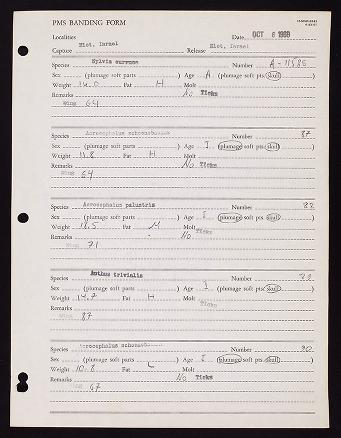 PMS BANDING FORM
Localities Date OCT 6 1968
Capture Eiot, Israel Release Eiot, Israel
Species Sylvia curruca Number A-11586
Sex (plumage soft parts ) Age A (plumage soft pts. skull )
Weight 14.0 Fat M Molt
Remarks No Ticks
Wing 64
Species Acrocephalus schoenobaenus Number 87
Sex (plumage soft parts ) Age I (plumage soft pts. skull )
Weight 11.8 Fat M Molt
Remarks No Ticks
Wing 64
Species Acrocephalus palustris Number 88
Sex (plumage soft parts ) Age I (plumage soft pts. skull )
Weight Fat M Molt
Remarks No Ticks
Wing 71
Species Anthus trivialis Number
Sex (plumage soft parts ) Age I (plumage soft pts. skull )
Weight 14.7 Fat M Molt
Remarks Ticks
Wing 87
Species Acrocephalus Number 90
Sex (plumage soft parts ) Age I (plumage soft pts. skull )
Weight 10.8 Fat L Molt
Remarks No Ticks
67